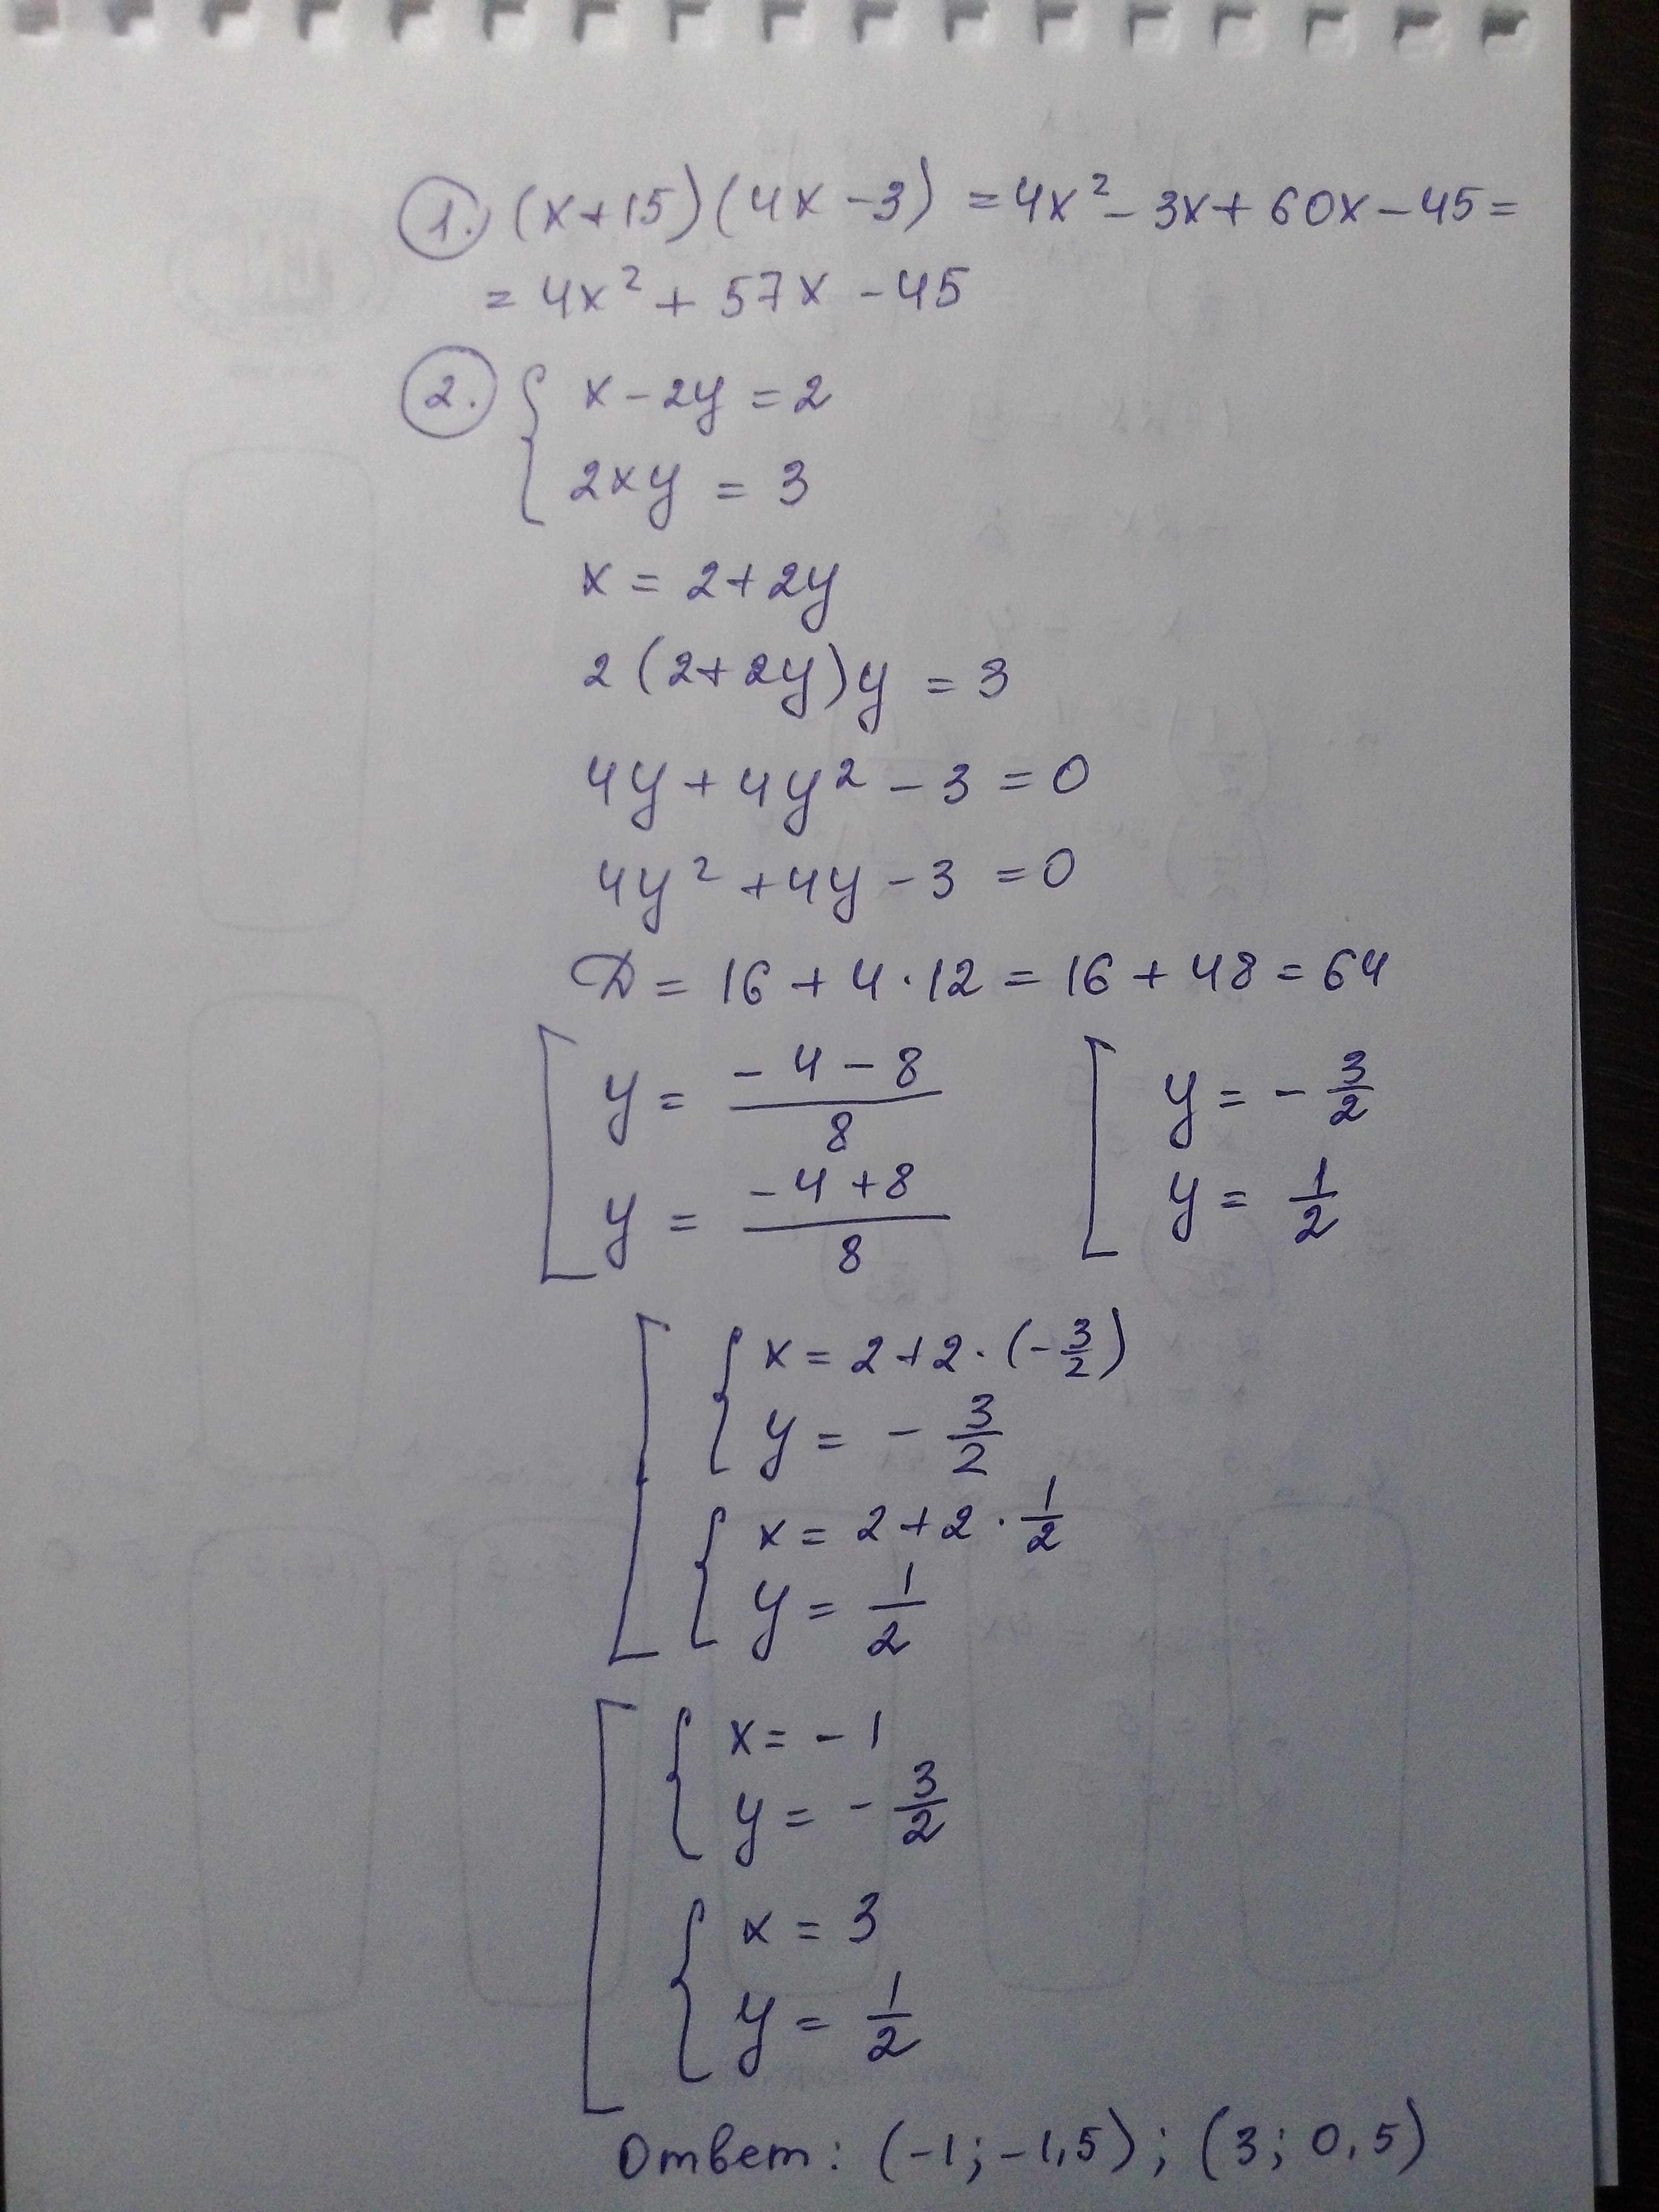 1. (x+15)(4x-3) = 4x² - 3x + 60x - 45 =
= 4x² + 57x - 45
2. { x - 2y = 2
2xy = 3
x = 2 + 2y
2(2+2y)y = 3
4y + 4y² - 3 = 0
4y² + 4y - 3 = 0
D = 16 + 4·12 = 16 + 48 = 64
[ y = (-4-8)/8 [ y = -3/2
y = (-4+8)/8 y = 1/2
[ { x = 2+2·(-3/2)
y = -3/2
{ x = 2+2·1/2
y = 1/2
[ { x = -1
y = -3/2
{ x = 3
y = 1/2
Ответ: (-1; -1,5); (3; 0,5)